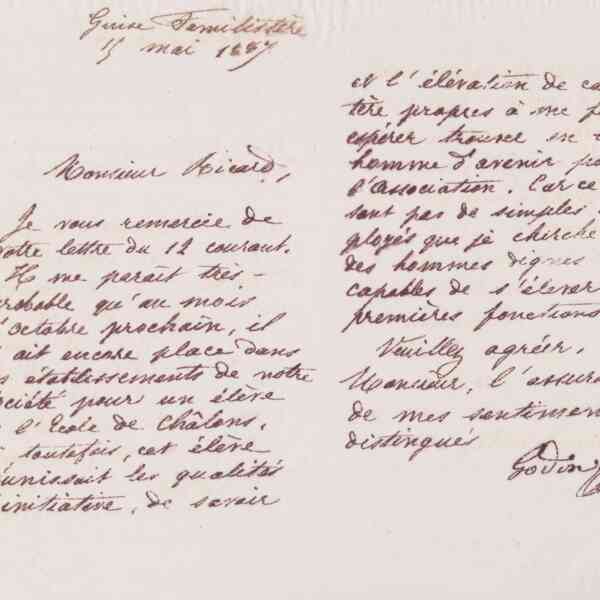 Guise Familistère
15 mai 1887
Monsieur Ricard,
Je vous remercie de
votre lettre du 12 courant.
Il me paraît très-
probable qu'au mois
d'octobre prochain, il
y ait encore place dans
s établissements de notre
société pour un élève
l'Ecole de Châlons,
toutefois, cet élève
réunissait les qualités
initiative, de savoir
et l'élévation de ca
tère propres à me f
espérer trouver en
homme d'avenir po
l'Association. Car ce
sont pas de simples
ployés que je cherche
des hommes dignes
capables de s'élever
premières fonctions
Veuillez agréer,
Monsieur, l'assura
de mes sentimen
distingués
Godin